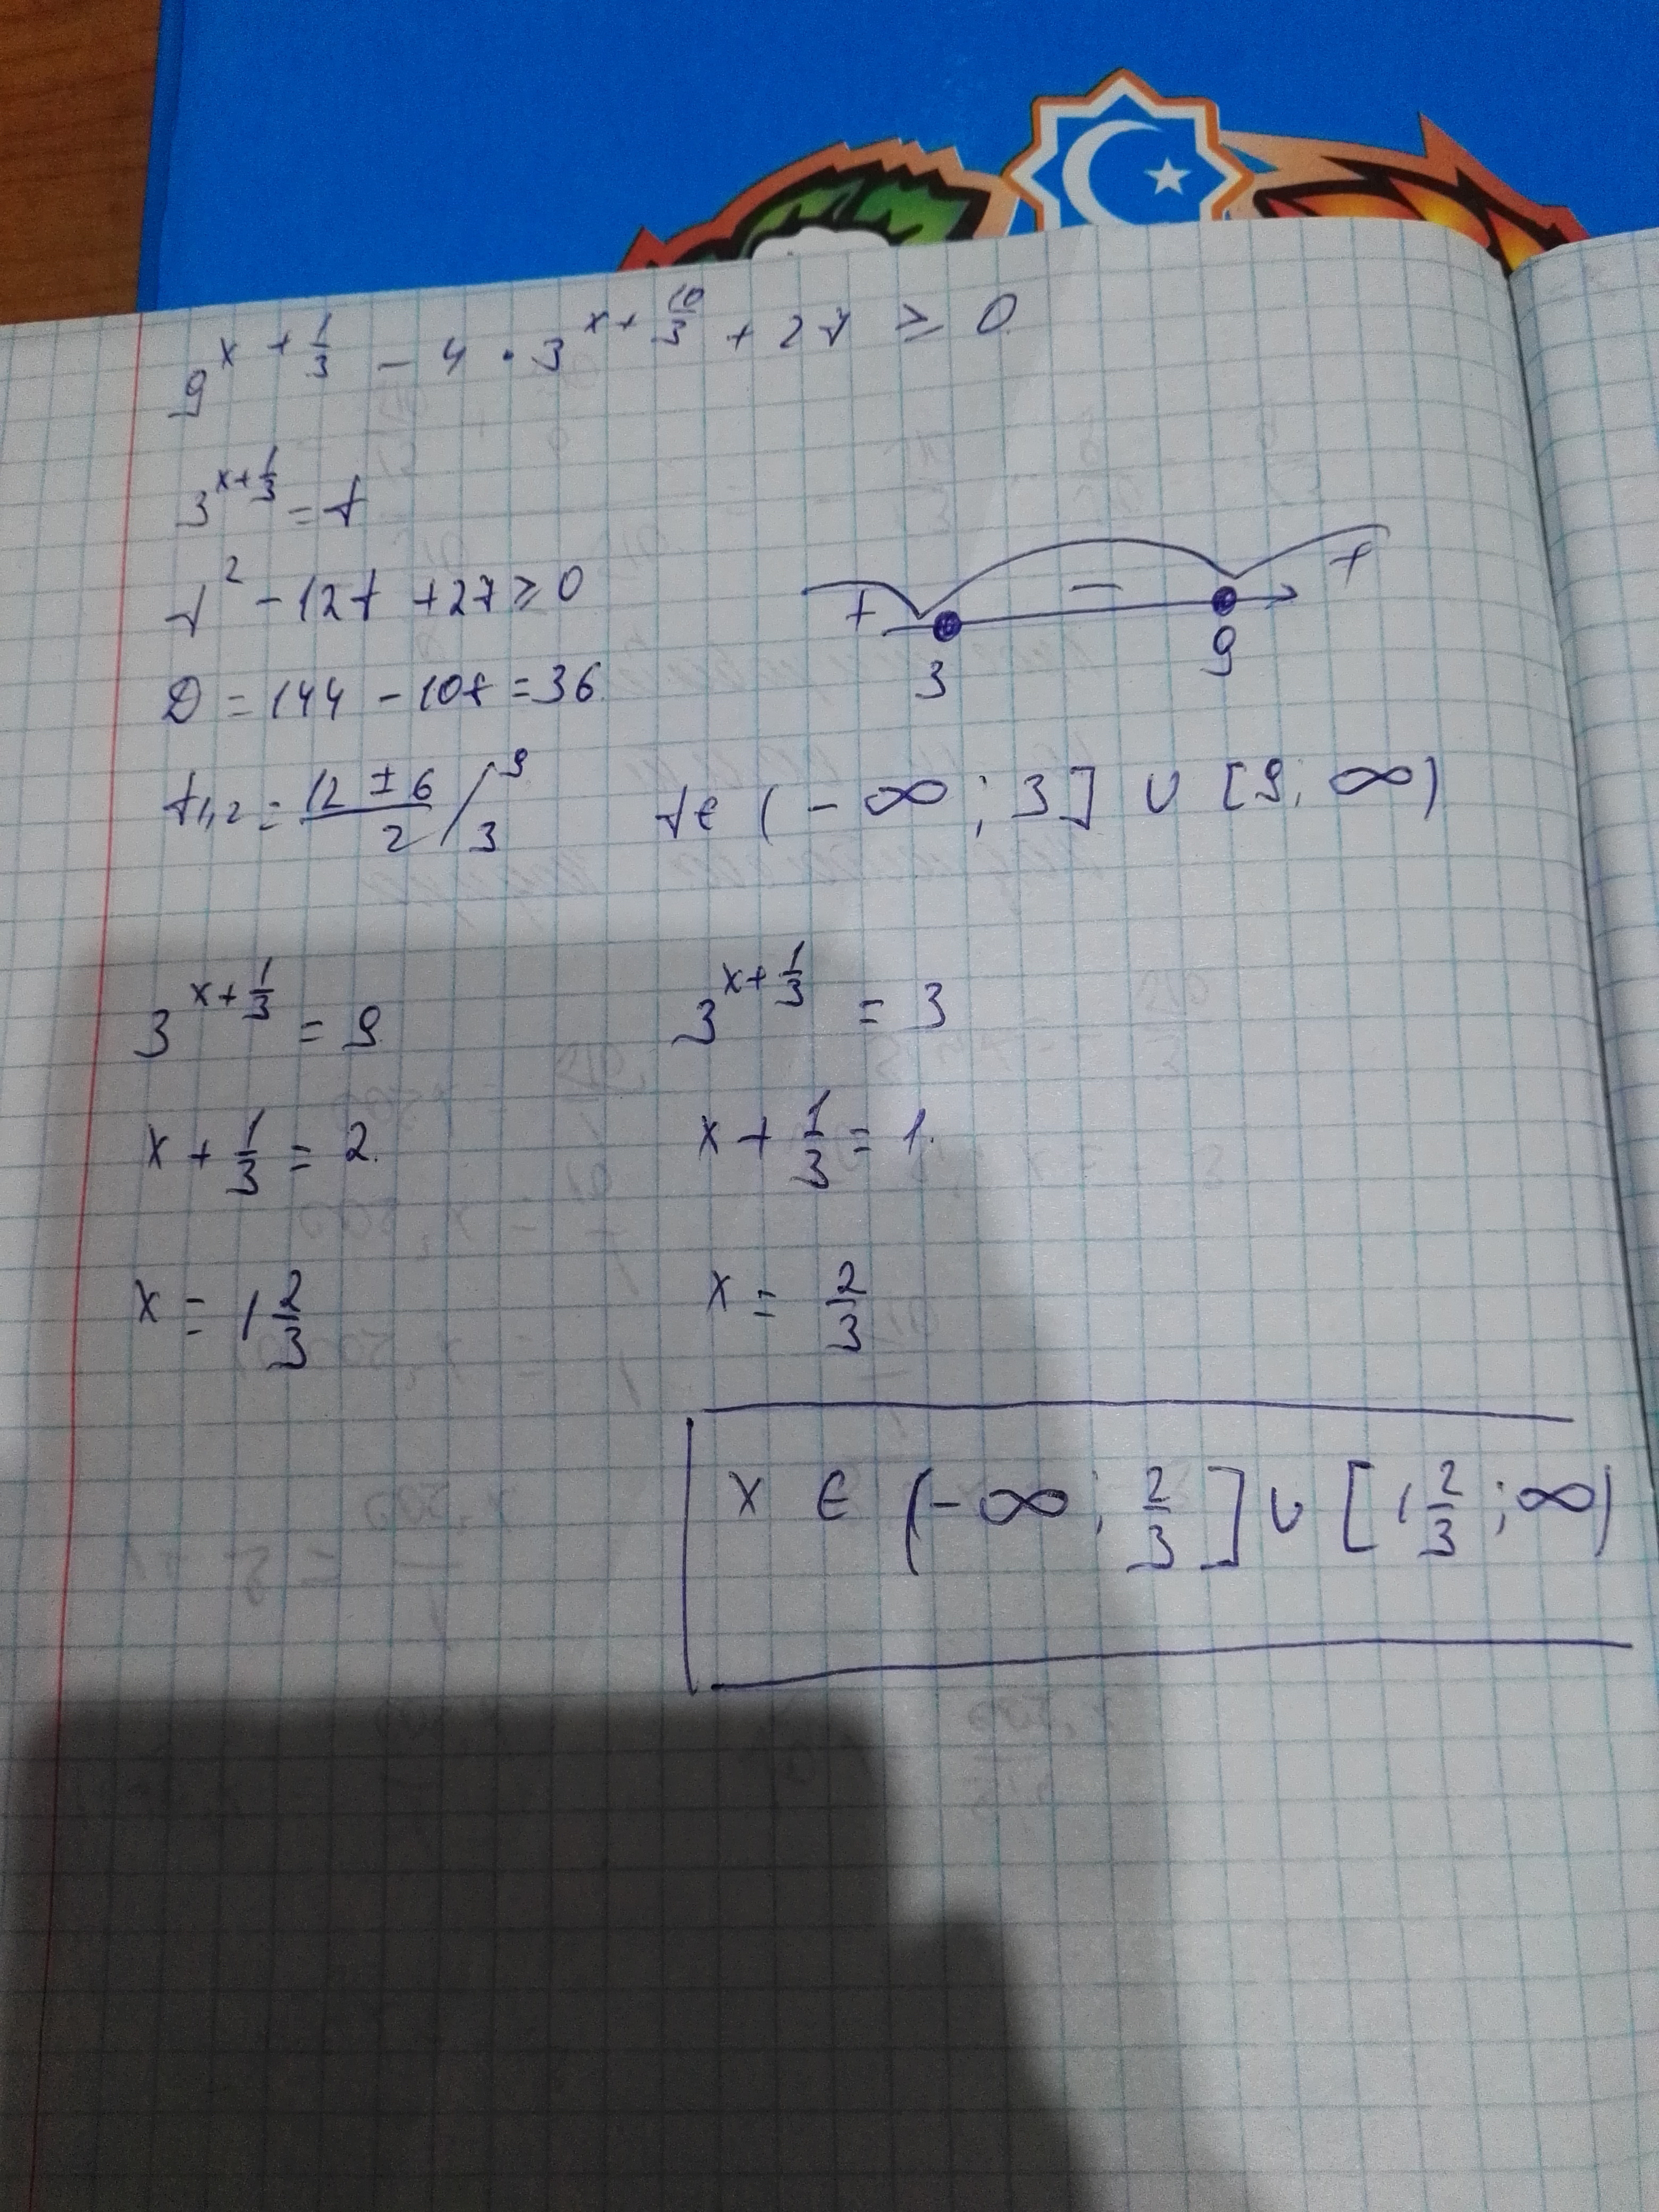 9^{x + 1/3} - 4 · 3^{x + 10/3} + 27 ≥ 0
3^{x + 1/3} = t
t² - 12t + 27 ≥ 0
+ - +
3 9
D = 144 - 108 = 36
t₁,₂ = (12 ± 6)/2 / 9 3
t ∈ (-∞; 3] ∪ [9; ∞)
3^{x + 1/3} = 9
3^{x + 1/3} = 3
x + 1/3 = 2.
x + 1/3 = 1.
x = 1 2/3
x = 2/3
x ∈ (-∞; 2/3] ∪ [1 2/3; ∞)